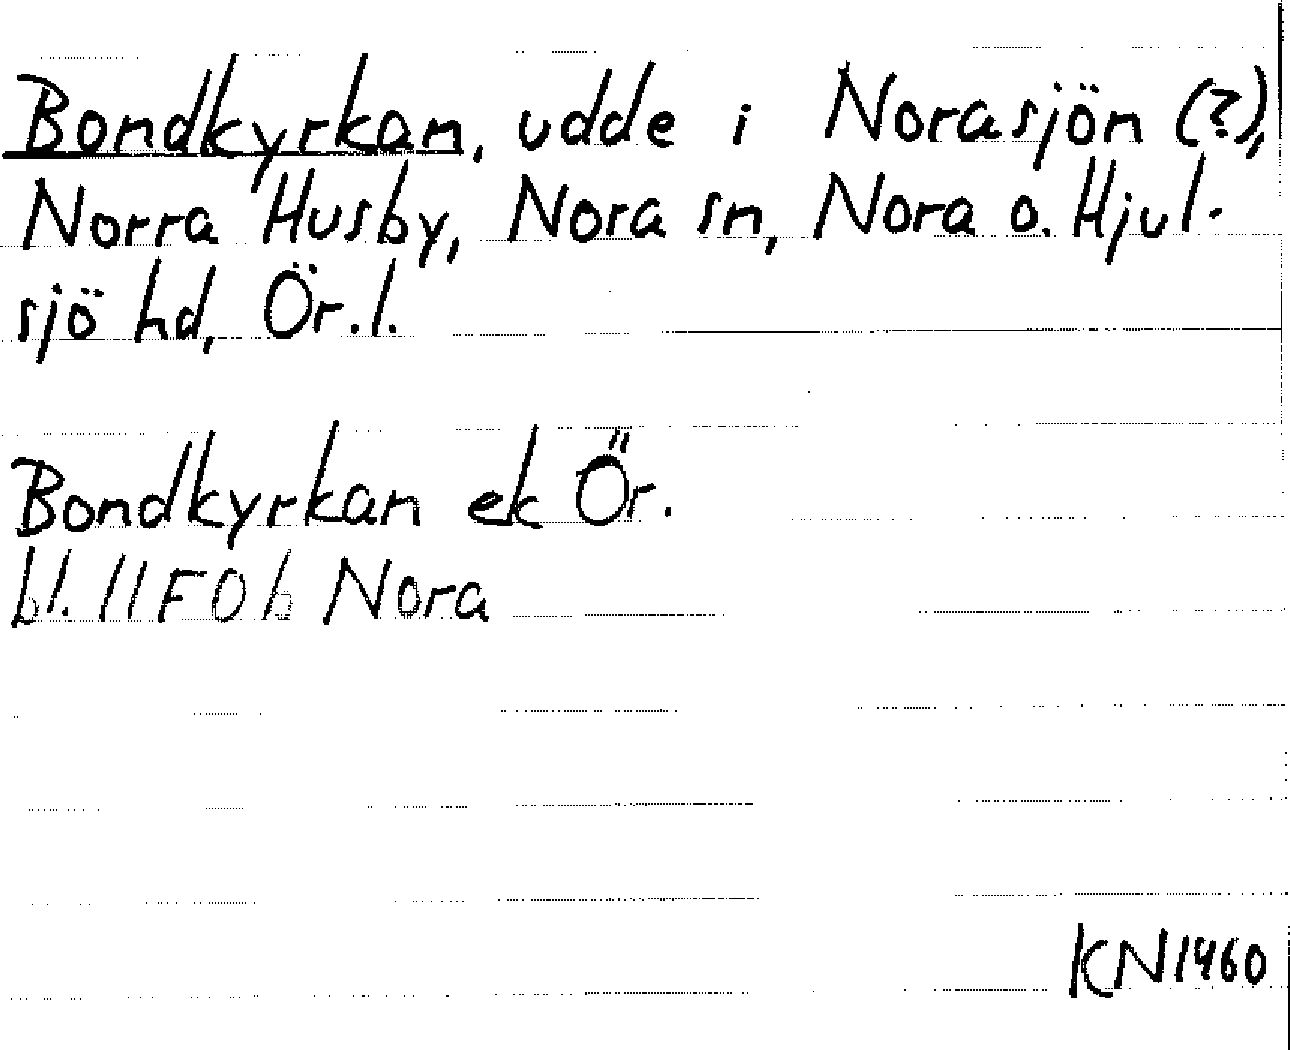 Bondkyrkan, udde i Norasjön (?),
Norra Husby, Nora sn, Nora o. Hjul-
sjö hd, Ör.l.
Bondkyrkan ek Ör.
bl. 11F0h Nora
KN1460